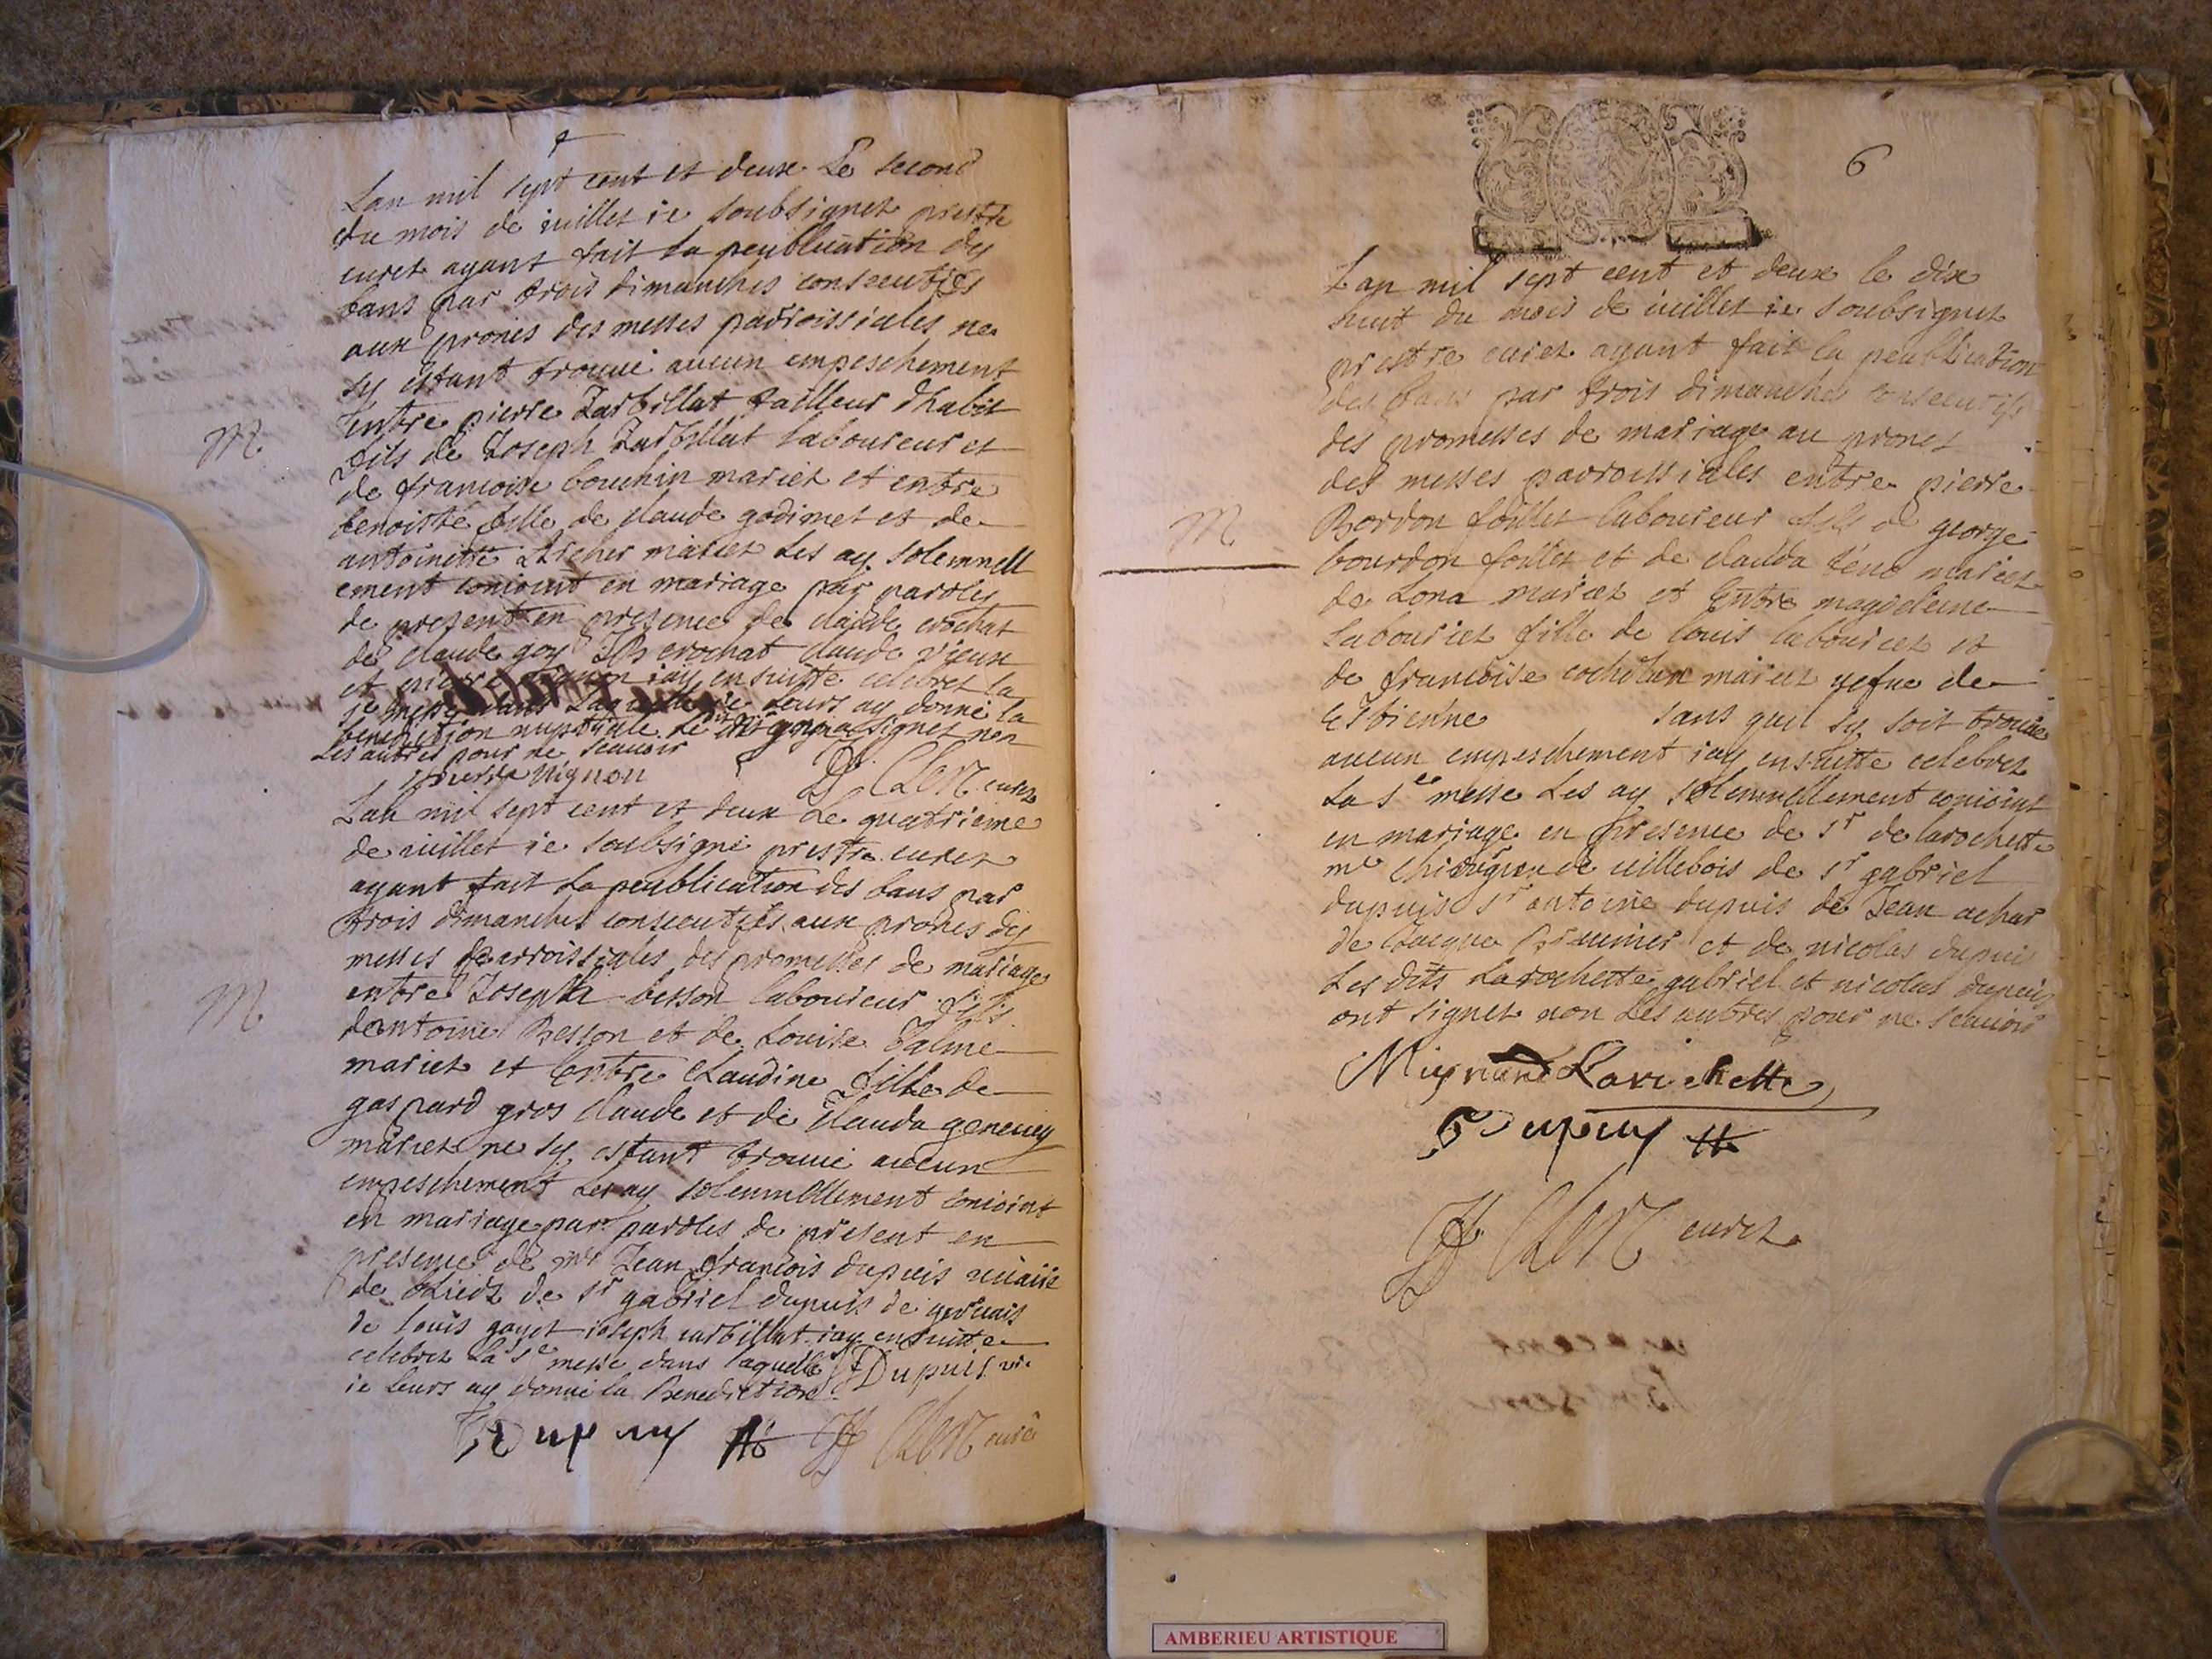 Lan mil sept cent et deux Le second
du mois de iuillet ie soubsignez prestre
curez ayant fait la peublication des
bans par trois dimanches consecutifes
aux prones des messes parroissiales ne
sy estant trouué aucun empeschement
M
Entre pierre Tarbillat tailleur dhabit
fils de Joseph Tarbillat laboureur et
de francoise bouchin mariez et entre
benoiste fille de claude godimet et de
antoinette Archer mariez Les ay solemnell
ement conioint en mariage par paroles
de present en presence de claude crochat
de claude goy crochat claude vieux
et pierre iay ensuitte celebrez la
messe dans Laquelle ie Leurs ay donné la
benediction nuptiale Le signez non
Les autres pour ne scauoir
pierre Mignon
Clerc curez
Lan mil sept cent et deux Le quatrieme
de iuillet ie soubsigné prestre curez
ayant fait la peublication des bans par
trois dimanches consecutifes aux prones des
messes parroissiales des promesses de mariage
M
entre Joseph besson laboureur fils
dantoine Besson et de Louise
mariez et Entre Claudine fille de
gaspard gros claude et de Clauda
mariez ne sy estant trouué aucun
empeschement Les ay solemnellement conioint
en mariage par paroles de present en
presence de mr Jean francois dupuis
de de sr gabriel dupuis de geruais
de louis goyet ioseph tarbillat iay ensuitte
celebrez La Se messe dans laquelle
ie leurs ay donné la Benediction
Dupuis
Dupuy Clerc curé
6
Lan mil sept cent et deux le dix
huit du mois de iuillet ie soubsignez
prestre curez ayant fait la peublication
des bans par trois dimanches consecutifes
des promesses de mariage au prones
des messes parroissiales entre pierre
M
Bordon follet laboureur fils de george
bourdon follet et de clauda mariez
de Lona mariez et Entre magdeleine
labouriez fille de louis labouriez et
de francoise mariez vefue de
Estienne sans quil sy soit trouué
aucun empeschement iay ensuitte celebrez
La Se messe Les ay solemnellement conioint
en mariage en presence de sr de larochette
me chirurgien de uillebois de sr gabriel
dupuis sr antoine dupuis de Jean achar
de Jacque et de nicolas dupuis
Les dits Larochette gabriel et nicolas dupuis
ont signez non Les autres pour ne scauoir
Larochette
Dupuy
Clerc curez
AMBERIEU ARTISTIQUE